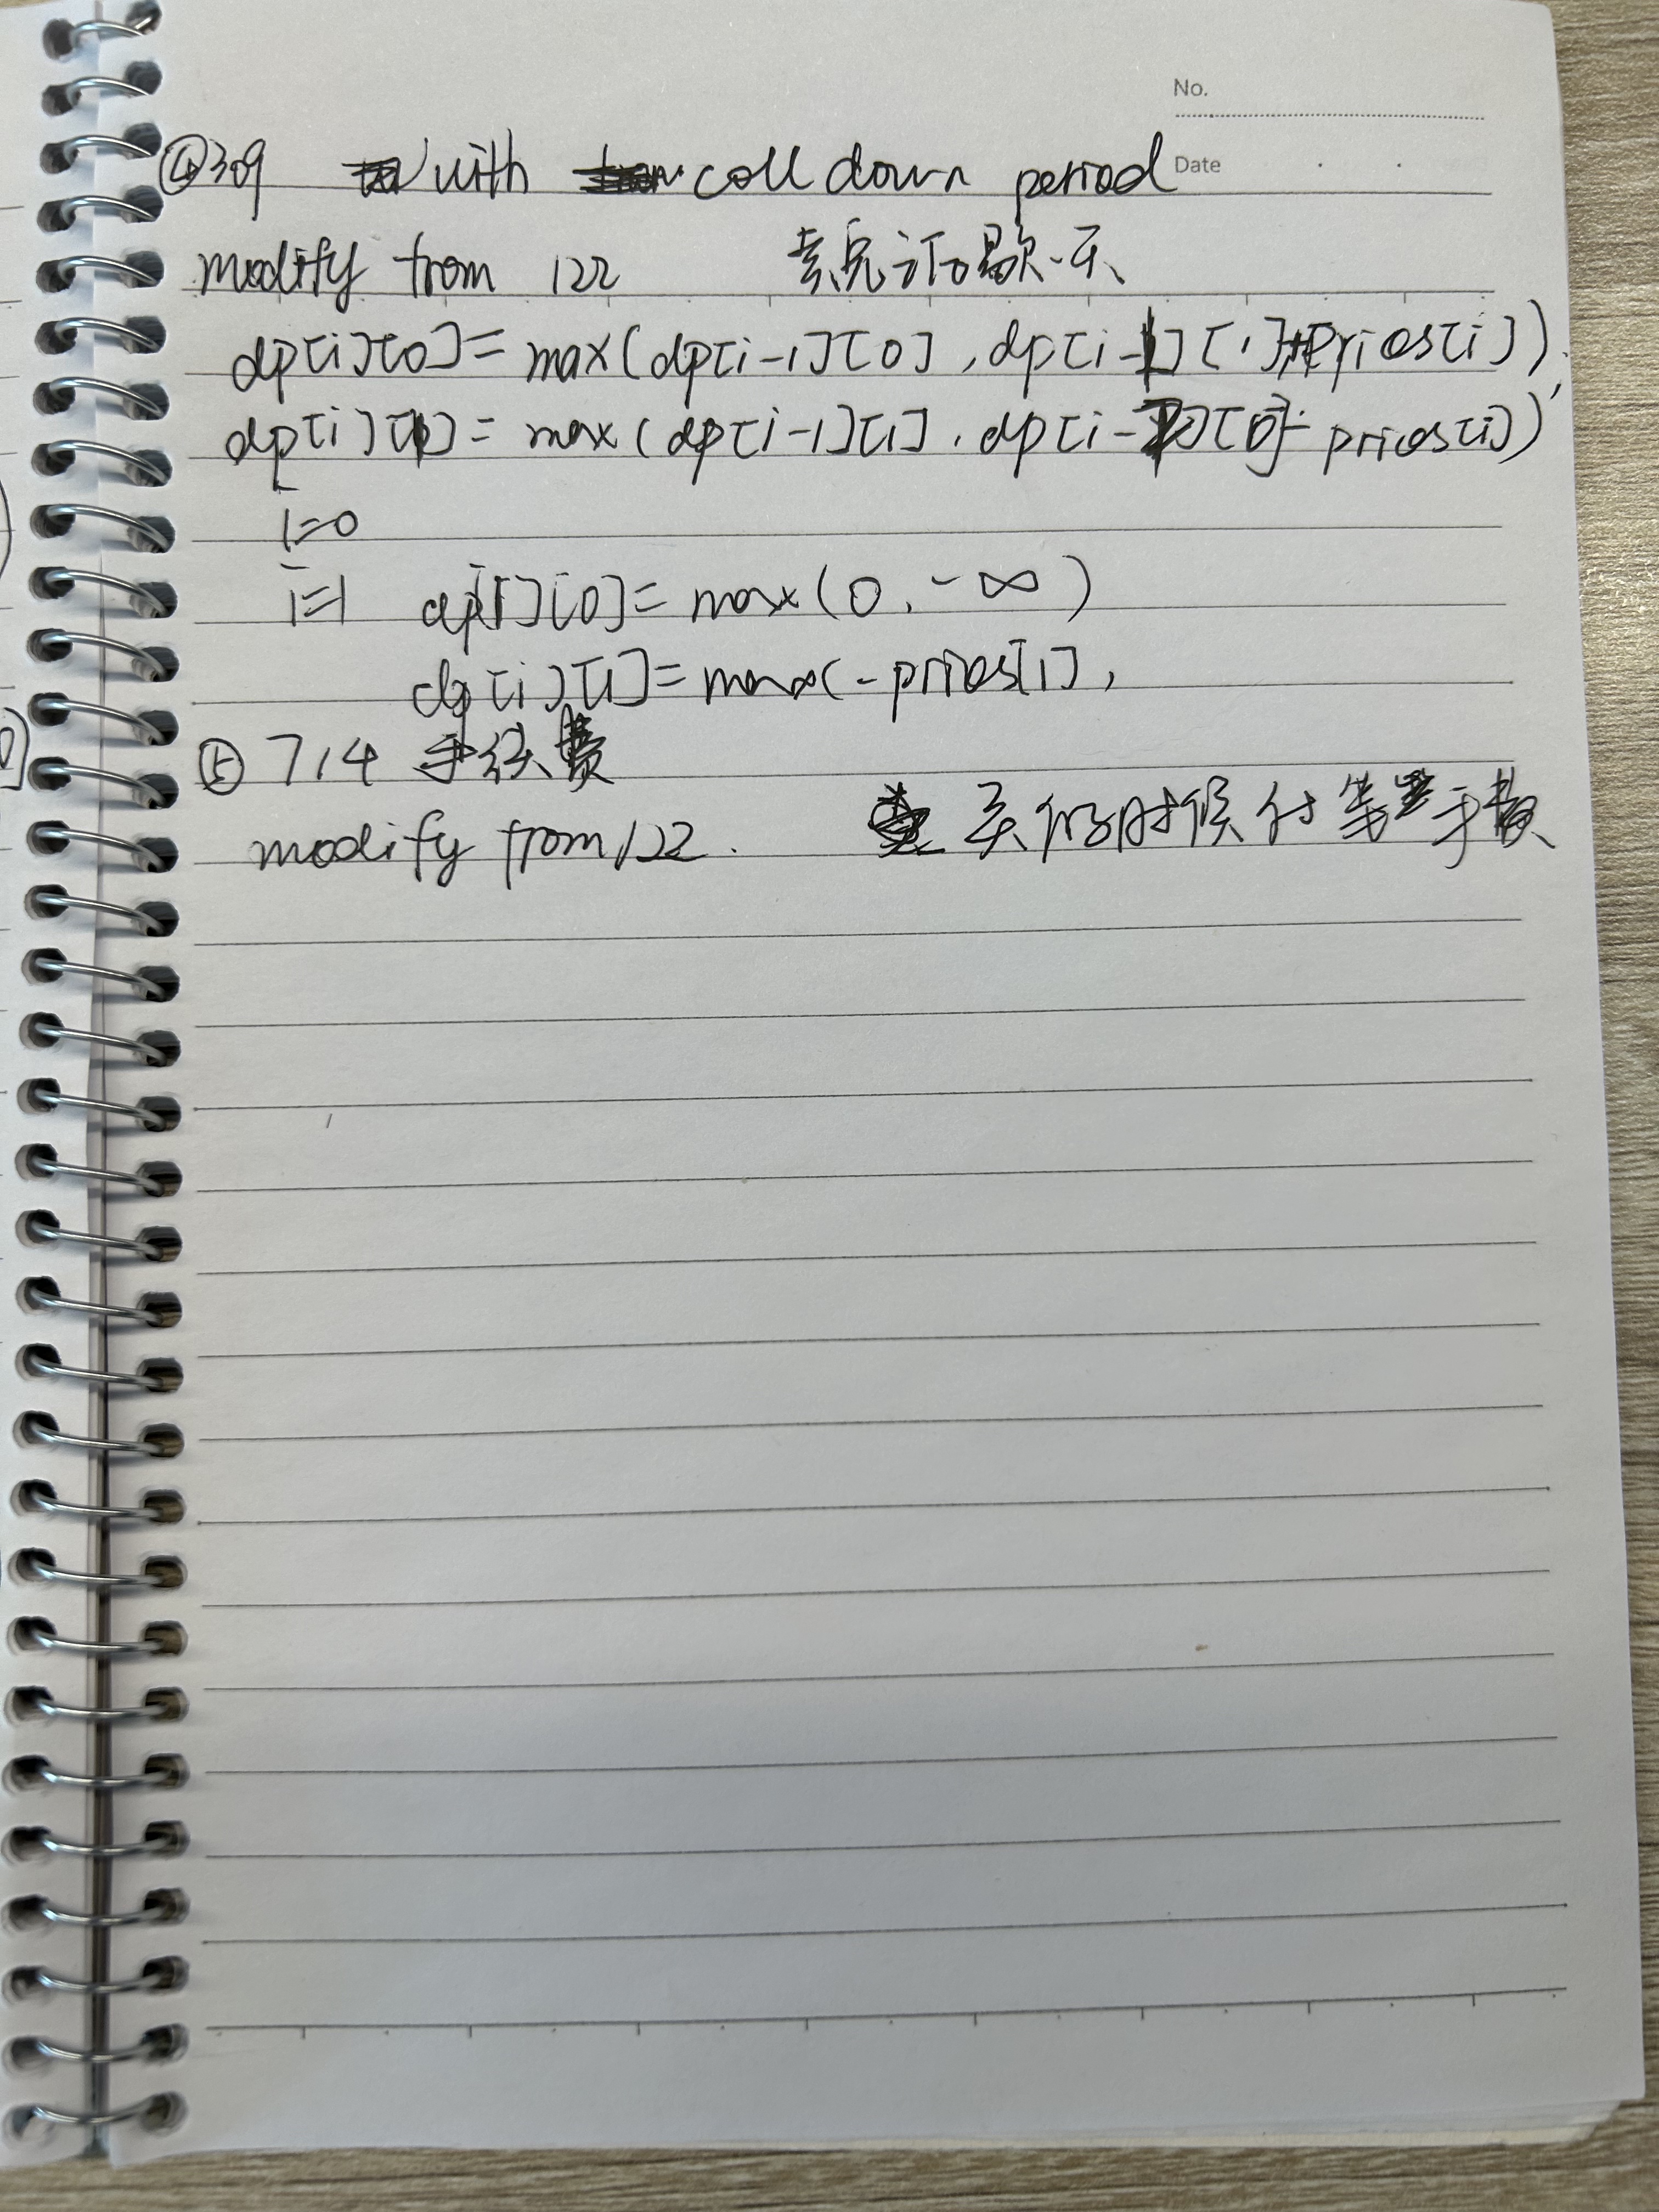 No.
Date
④309 with colldown period
modify from 122 卖完需歇一天
dp[i][0]=max(dp[i-1][0],dp[i-1][1]+prices[i])
dp[i][1]=max(dp[i-1][1],dp[i-2][0]-prices[i])
i=0
i=1 dp[i][0]=max(0,-∞)
dp[i][1]=max(-prices[1],
⑤ 714 手续费
modify from 122. 买的时候付